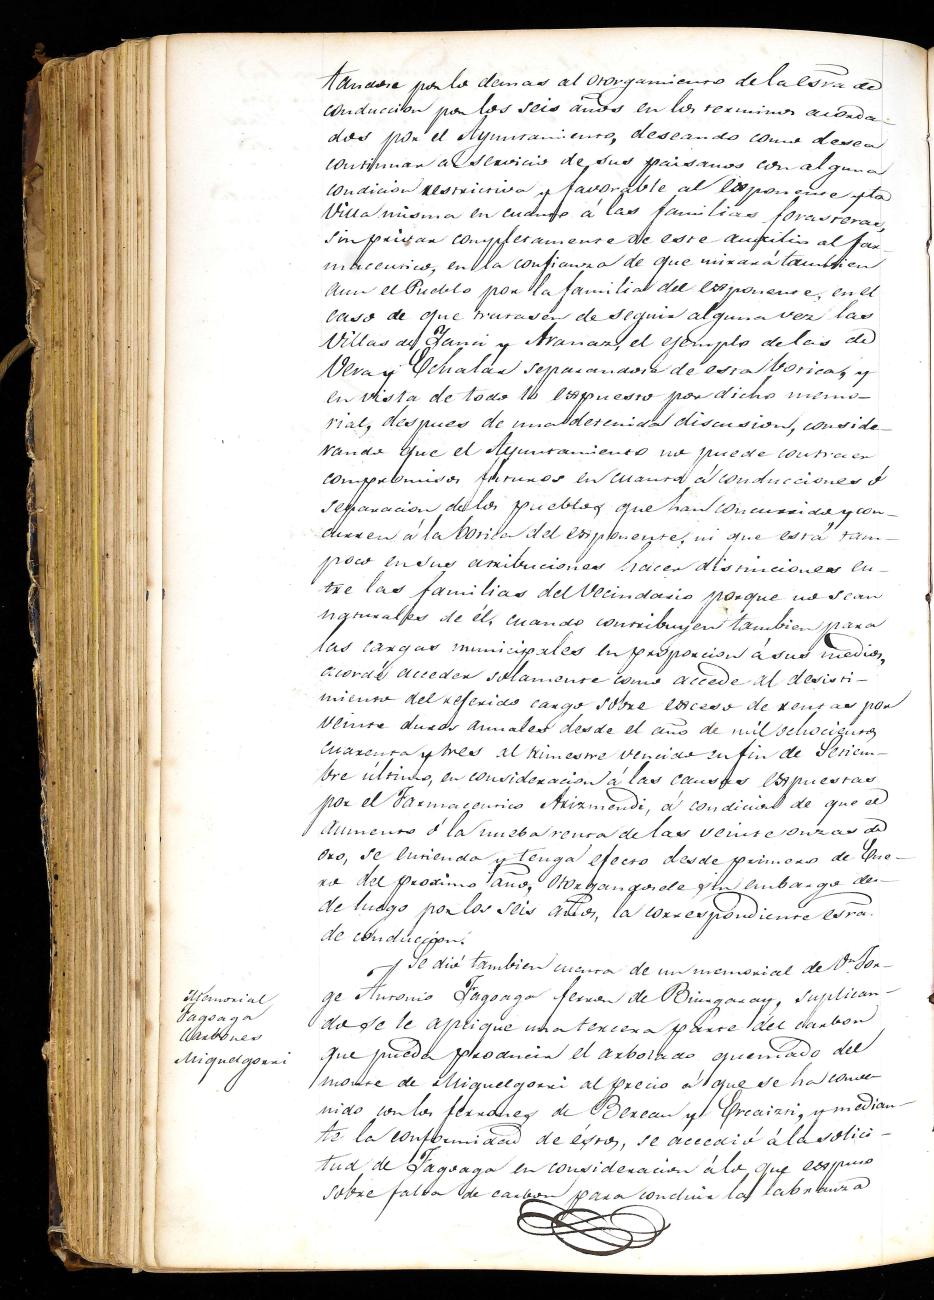 tandose por lo demas al otorgamiento de la esra de
conduccion por los seis años en los terminos acorda-
dos por el Ayuntamiento, deseando como desea
continuar al servicio de sus paisanos con alguna
condicion restrictiva y favorable al exponente y la
Villa misma en cuanto á las familias forasteras,
sin privar completamente de este auxilio al far-
maceutico, en la confianza de que mirará tambien
aun el Pueblo por la familia del exponente, en el
caso de que tratasen de seguir alguna vez las
Villas de Yanci y Aranaz, el ejemplo de las de
Vera y Echalar separandose de esta botica, y
en vista de todo lo expuesto por dicho memo-
rial, despues de una detenida discusion, conside-
rando que el Ayuntamiento no puede contraer
compromisos futuros en cuanto á conducciones ó
separacion de los pueblos que han concurrido y con-
curren á la botica del exponente, ni que está tam-
poco en sus atribuciones hacer distinciones en-
tre las familias del Vecindario porque no sean
naturales de él, cuando contribuyen tambien para
las cargas municipales en proporcion á sus medios,
acordó acceder solamente como accede al desisti-
miento del referido cargo sobre exceso de rentas por
veinte duros annales desde el año de mil ochocientos
cuarenta y tres al trimestre vencido en fin de Setiem-
bre último, en consideracion á las causas expuestas
por el Farmaceutico Arizmendi, á condicion de que el
aumento ó la nueba renta de las veinte onzas de
oro, se entienda y tenga efecto desde primero de Ene-
ro del proximo año, otorgandosele sin embargo des-
de luego por los seis años, la correspondiente esra.
de conduccion.
Se dió tambien cuenta de un memorial de Dn. Jor-
ge Antonio Fagoaga ferron de Biurgaray, suplican-
do se le aplique una tercera parte del carbon
que pueda producir el arbolado quemado del
monte de Miquelgorri al precio á que se ha conve-
nido con los ferrones de Berean y Ercaizti, y median-
te la conformidad de éstos, se accedió á la solici-
tud de Fagoaga en consideracion á lo que expuso
sobre falta de carbon para concluir la labranza
Memorial
Fagoaga
Carbones
Miquelgorri